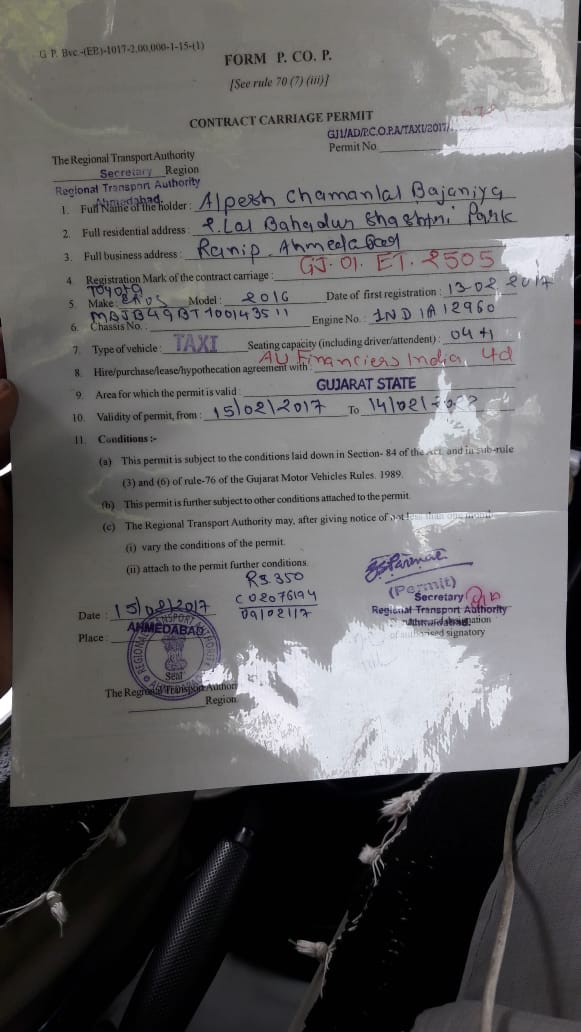 G P. Bvc.-(EB)-1017-2,00,000-1-15-(1)
FORM P. CO. P.
[See rule 70 (7) (iii)]
CONTRACT CARRIAGE PERMIT
GJ1/AD/P.C.O.P.A/TAXI/2017/
Permit No.
The Regional Transport Authority
Secretary Region
Regional Transport Authority
Ahmedabad.
1. Full Name of the holder : Alpesh Chamanlal Bajaniya
2. Full residential address : 2. Lal Bahadur Shashtri Park
3. Full business address : Ranip. Ahmedabad
4. Registration Mark of the contract carriage : GJ. 01. ET. 2505
5. Make : Toyota Etios Model : 2016 Date of first registration : 13-02 2017
6. Chassis No. : MBJB49BT100143511 Engine No. : 1ND 1A12960
7. Type of vehicle : TAXI Seating capacity (including driver/attendent) : 04+1
8. Hire/purchase/lease/hypothecation agreement with : AU Financiers India Ltd
9. Area for which the permit is valid : GUJARAT STATE
10. Validity of permit, from : 15/02/2017 To 14/02/2022
11. Conditions :-
(a) This permit is subject to the conditions laid down in Section- 84 of the Act. and in sub-rule
(3) and (6) of rule-76 of the Gujarat Motor Vehicles Rules. 1989.
(b) This permit is further subject to other conditions attached to the permit.
(c) The Regional Transport Authority may, after giving notice of not less than one month
(i) vary the conditions of the permit.
(ii) attach to the permit further conditions.
RS 350
C 02076194
09/02/17
(Permit)
Secretary
Regional Transport Authority
Ahmedabad.
designation
of authorised signatory
Date : 15/02/2017
Place : AHMEDABAD
REGIONAL TRANSPORT AUTHORITY
AHMEDABAD
Seal
The Regional Transport Authori
Region.